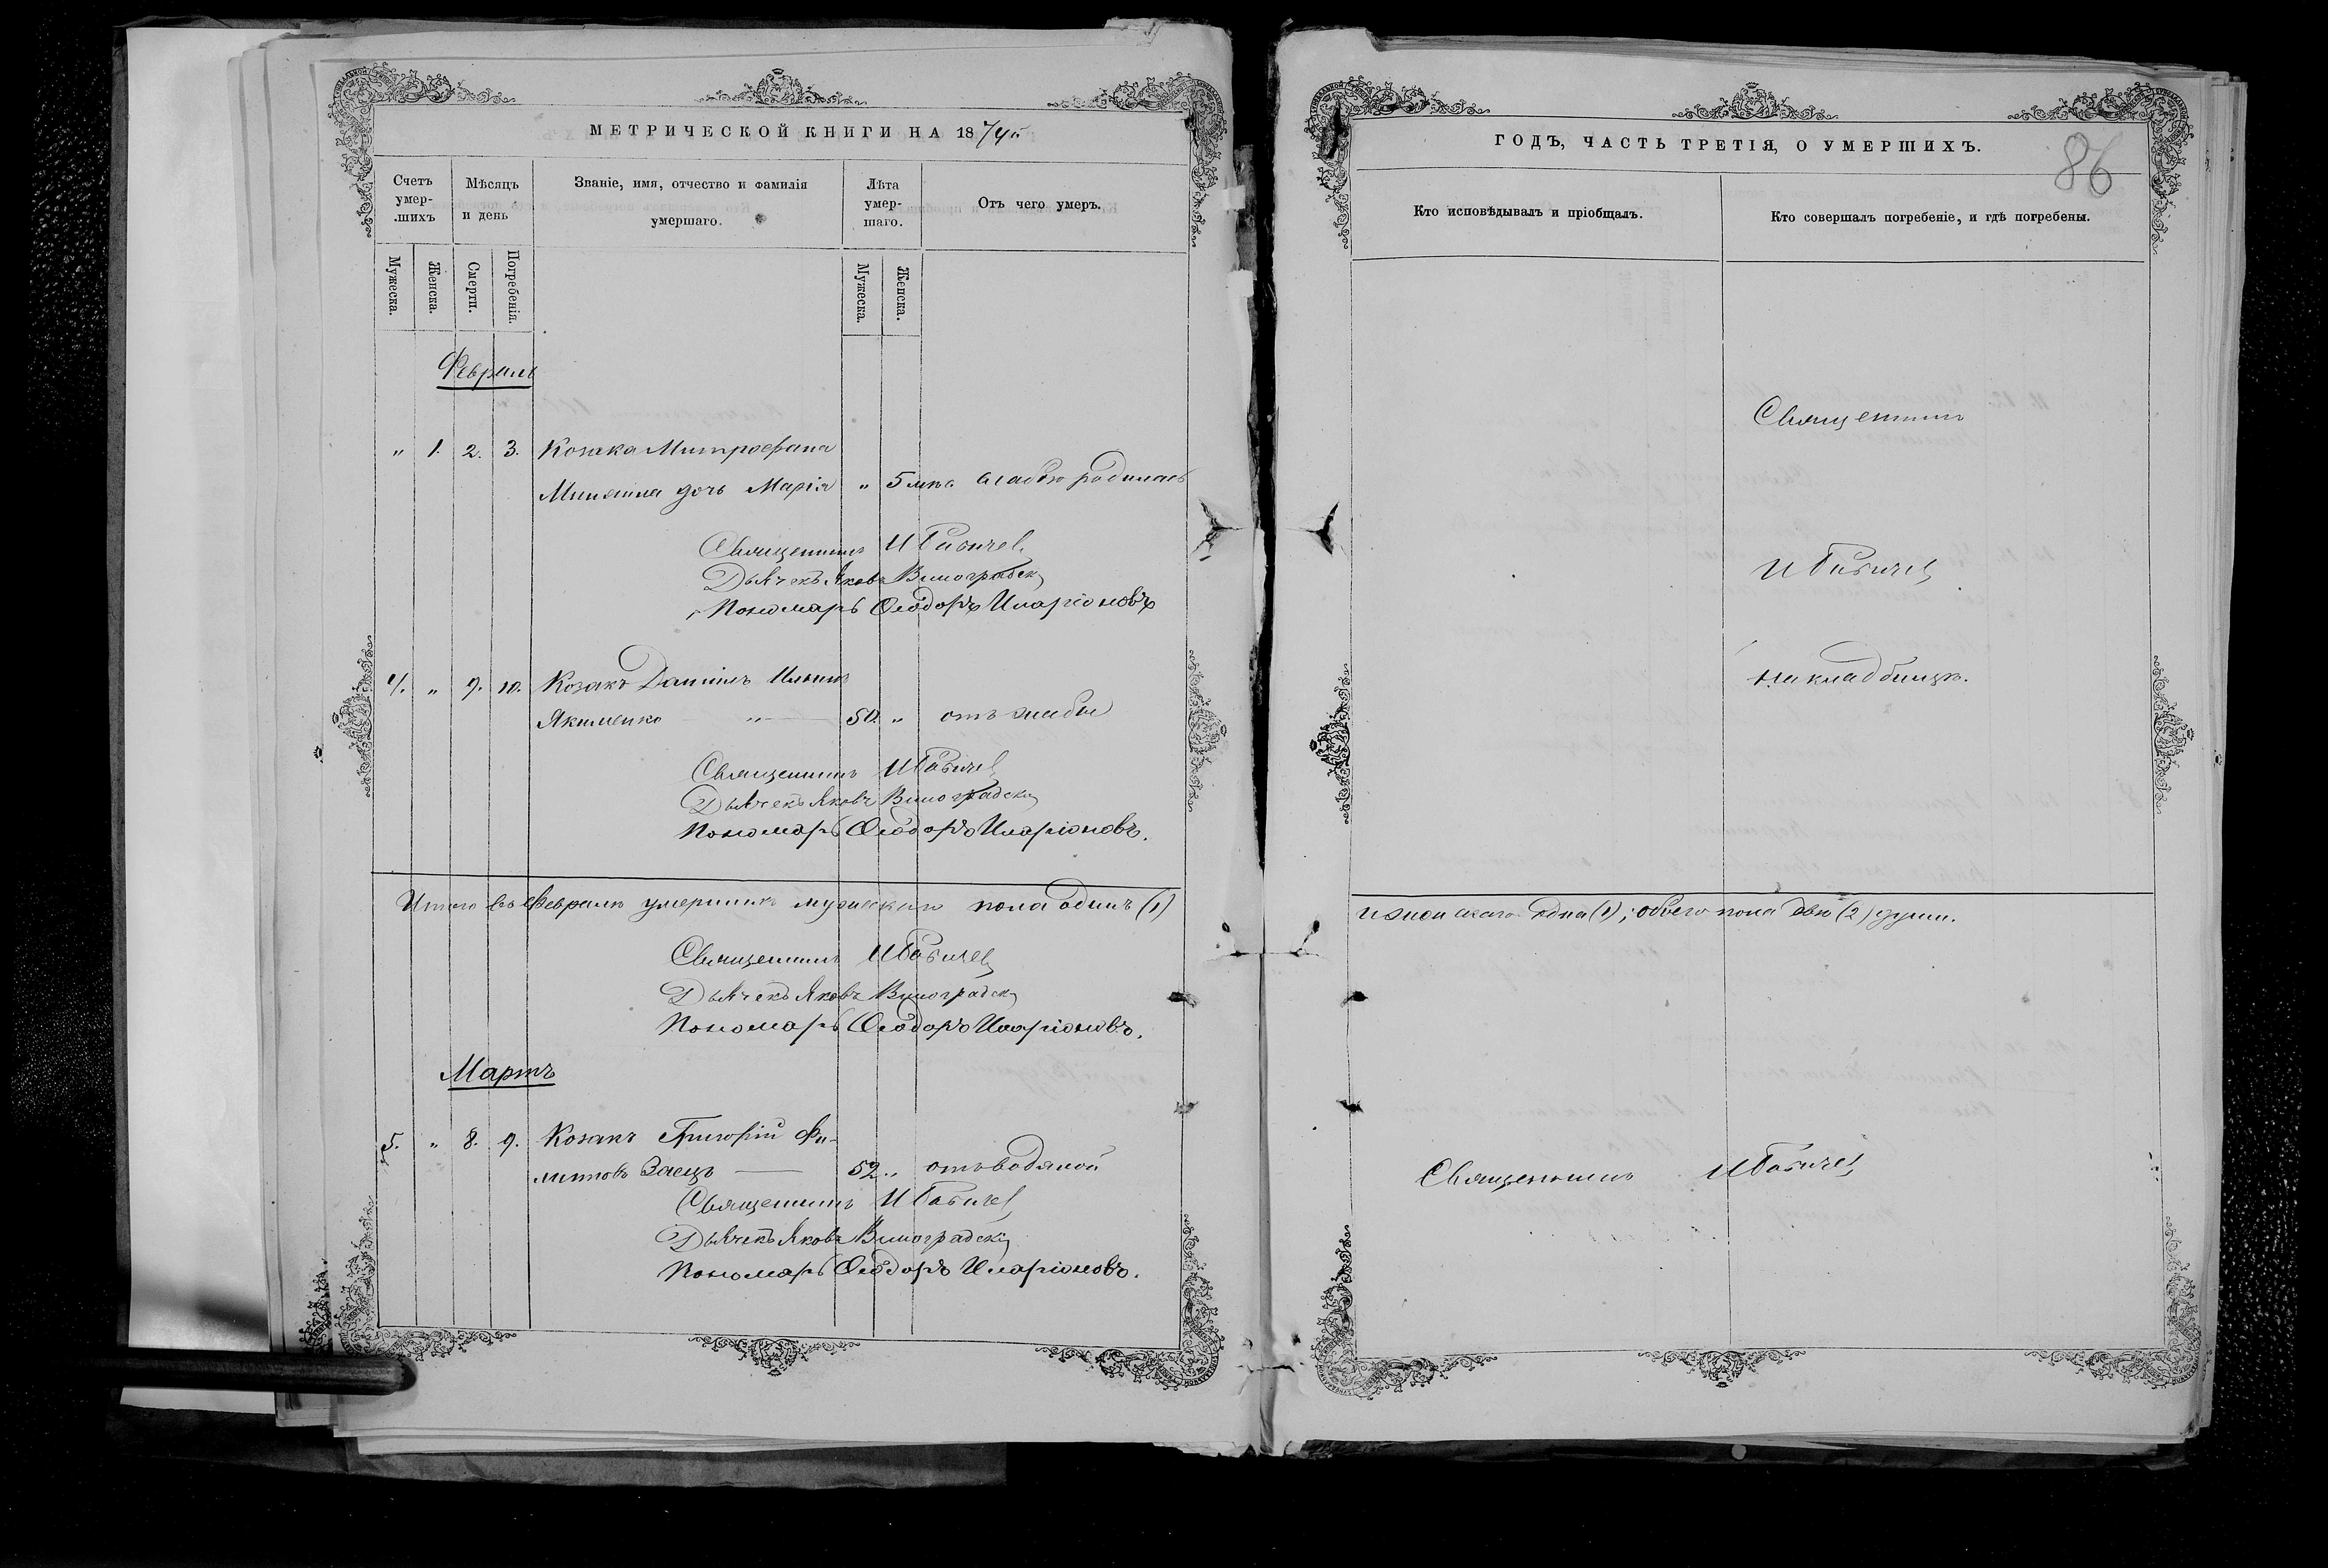 МЕТРИЧЕСКОЙ КНИГИ НА 1874й
Счетъ умер-.шихъ
Мѣсяцъ и день
Званіе, имя, отчество и фамилія умершаго.
Лѣта умер-шаго.
Отъ чего умеръ.
Мужеска.
Женска.
Смерти.
Погребенія.
Мужеска.
Женска.
Февраль
" 1. 2. 3. Козака Митрофана
дочь Марія " 5 слабою родилась
Священникъ И Бабичев
Дьячекъ Яковъ Виноградскі
Пономарь Ѳеодоръ Иларіоновъ
4. " 9. 10. Козакъ Даніилъ Ильинъ
Якименко " 50. " отъ жабы
Священникъ И Бабичев
Дьячекъ Яковъ Виноградскі
Пономарь Ѳеодоръ Иларіоновъ.
Итого въ Февралѣ умершихъ мужескаго пола одинъ (1)
Священникъ И Бабичев
Дьячекъ Яковъ Виноградскі
Пономарь Ѳеодоръ Иларіоновъ.
Мартъ
5. " 8. 9. Козакъ Григорій Фи-
липповъ Заецъ 52 " отъ водяной
Священникъ И Бабичев
Дьячекъ Яковъ Виноградскі
Пономарь Ѳеодоръ Иларіоновъ.
ГОДЪ, ЧАСТЬ ТРЕТІЯ, О УМЕРШИХЪ.
86
Кто исповѣдывалъ и пріобщалъ.
Кто совершалъ погребеніе, и гдѣ погребены.
Священникъ
И Бабичев
на кладбищѣ.
и женскаго одна (1); обоего пола двѣ (2) души.
Священникъ И Бабичев